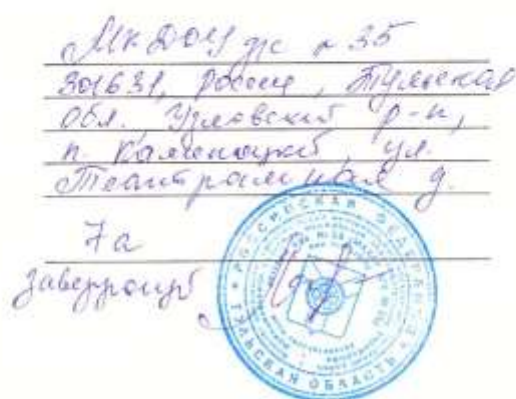 МкДОУ д/с № 35
301631, Россия, Тульская
обл. Узловский р-н,
п. Каменецкий, ул.
Театральная д.
7а
Заверяющ
РОССИЙСКАЯ ФЕДЕРАЦИЯ
ТУЛЬСКАЯ ОБЛАСТЬ